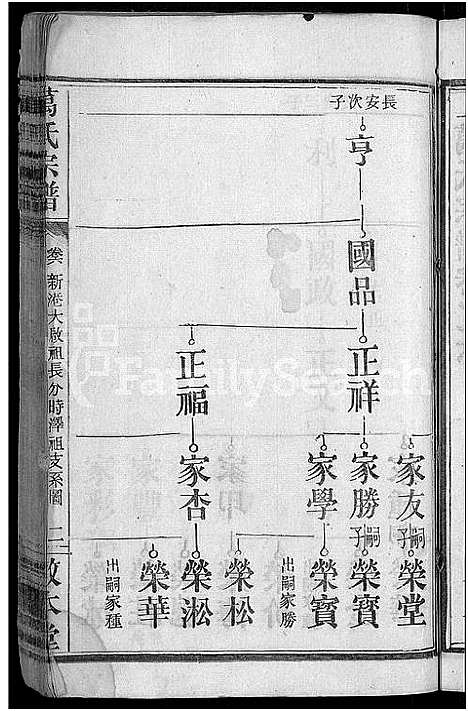 長安次子
亨
國品
正祥
正福
家友
家勝
家學
家杏
嗣子
榮堂
嗣子
榮寶
榮寶
出嗣家勝
榮松
榮淞
榮華
出嗣家種
萬氏宗譜
卷六
新港大啟祖長分時澤祖支系圖
敦本堂
FamilySearch